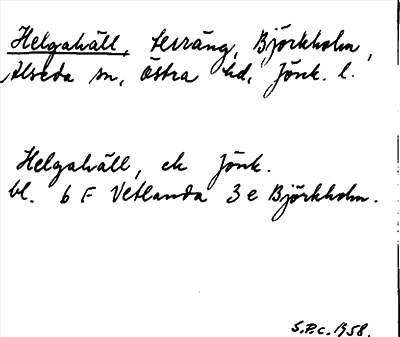 Helgahäll, terräng, Björkholm,
Alseda sn, Östra hd, Jönk. l.
Helgahäll, ek Jönk.
bl. 6 F Vetlanda 3 e Björkholm.
S.P.c. 1958.